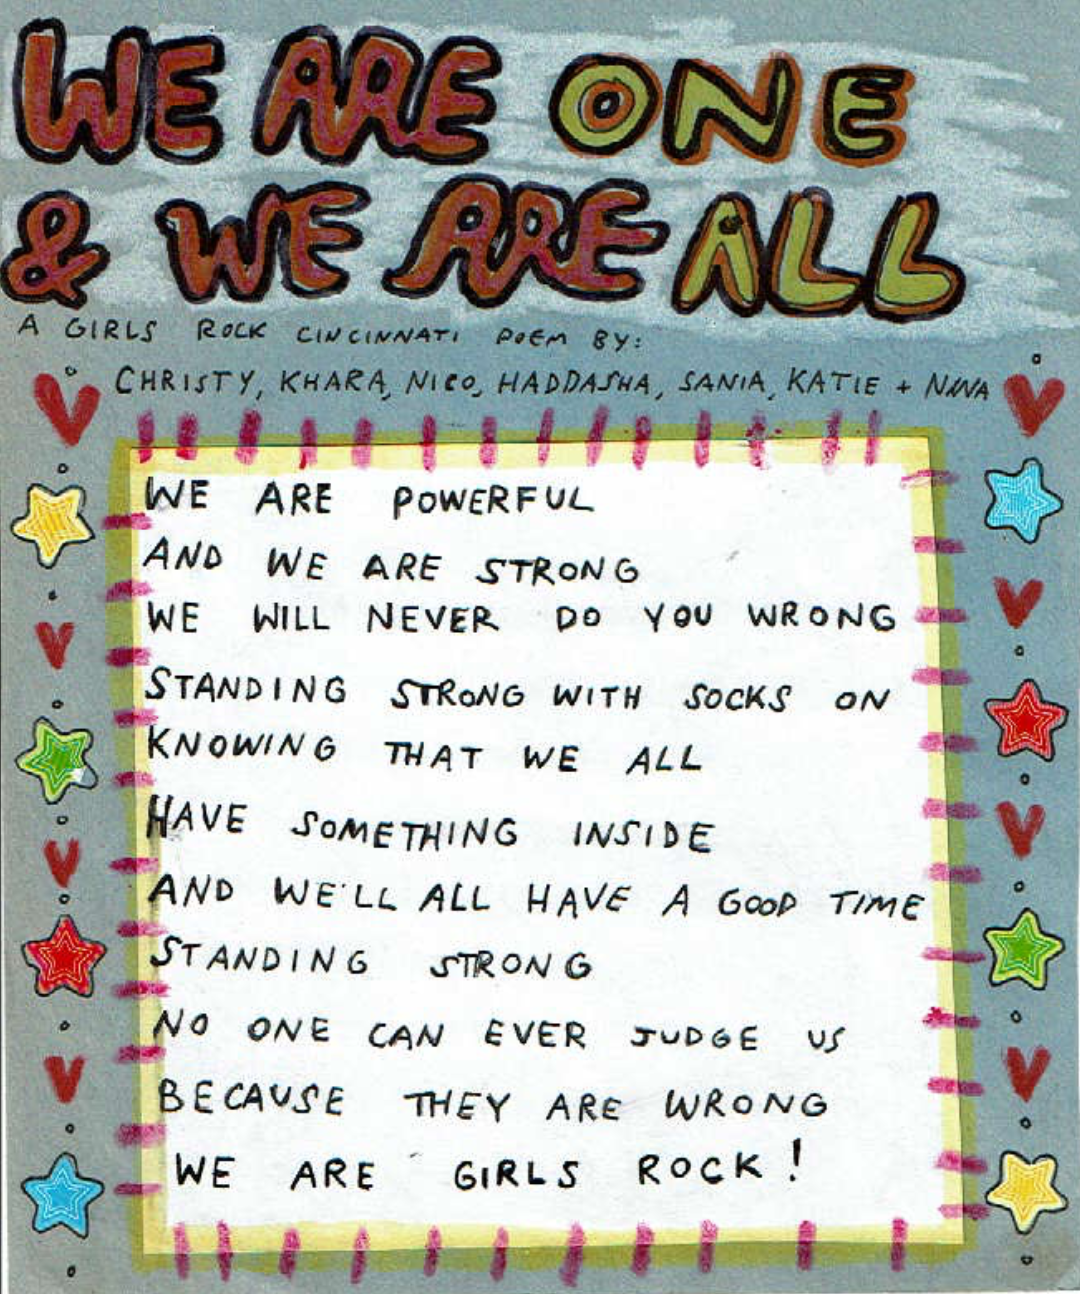 WE ARE ONE
& WE ARE ALL
A GIRLS ROCK CINCINNATI POEM BY:
CHRISTY, KHARA, NICO, HADDASHA, SANIA, KATIE + NINA
WE ARE POWERFUL
AND WE ARE STRONG
WE WILL NEVER DO YOU WRONG
STANDING STRONG WITH SOCKS ON
KNOWING THAT WE ALL
HAVE SOMETHING INSIDE
AND WE'LL ALL HAVE A GOOD TIME
STANDING STRONG
NO ONE CAN EVER JUDGE US
BECAUSE THEY ARE WRONG
WE ARE GIRLS ROCK!